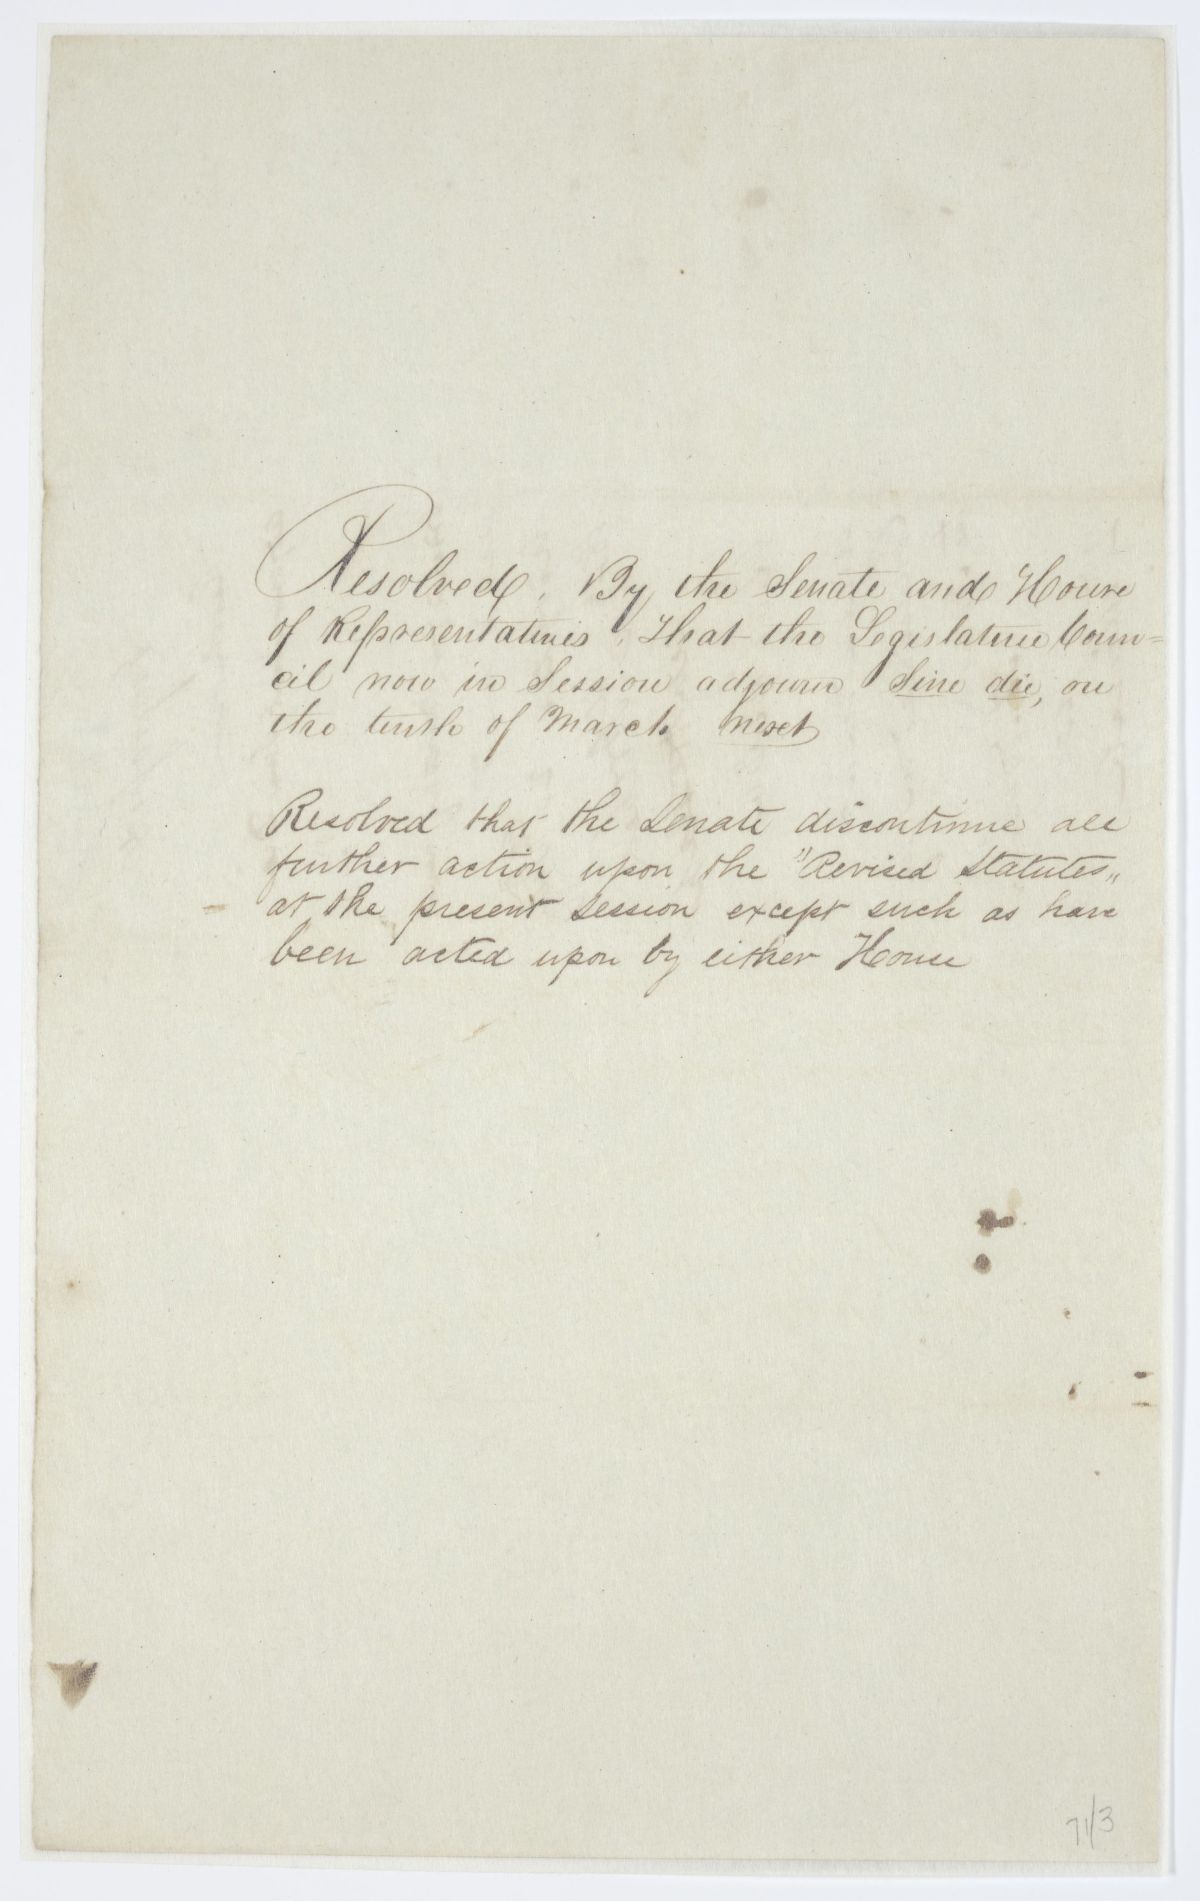 Resolved, By the Senate and House
of Representatives, That the Legislature Coun=
cil now in Session adjourn Sine die, on
the tenth of March next
Resolved that the Senate discontinue all
further action upon the "Revised Statutes„
at the present Session except such as have
been acted upon by either House
71/3